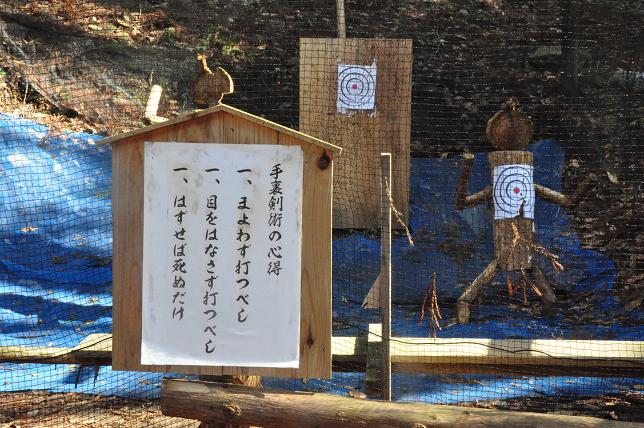 手裏剣術の心得
一、まよわず打つべし
一、目をはなさず打つべし
一、はずせば死ぬだけ